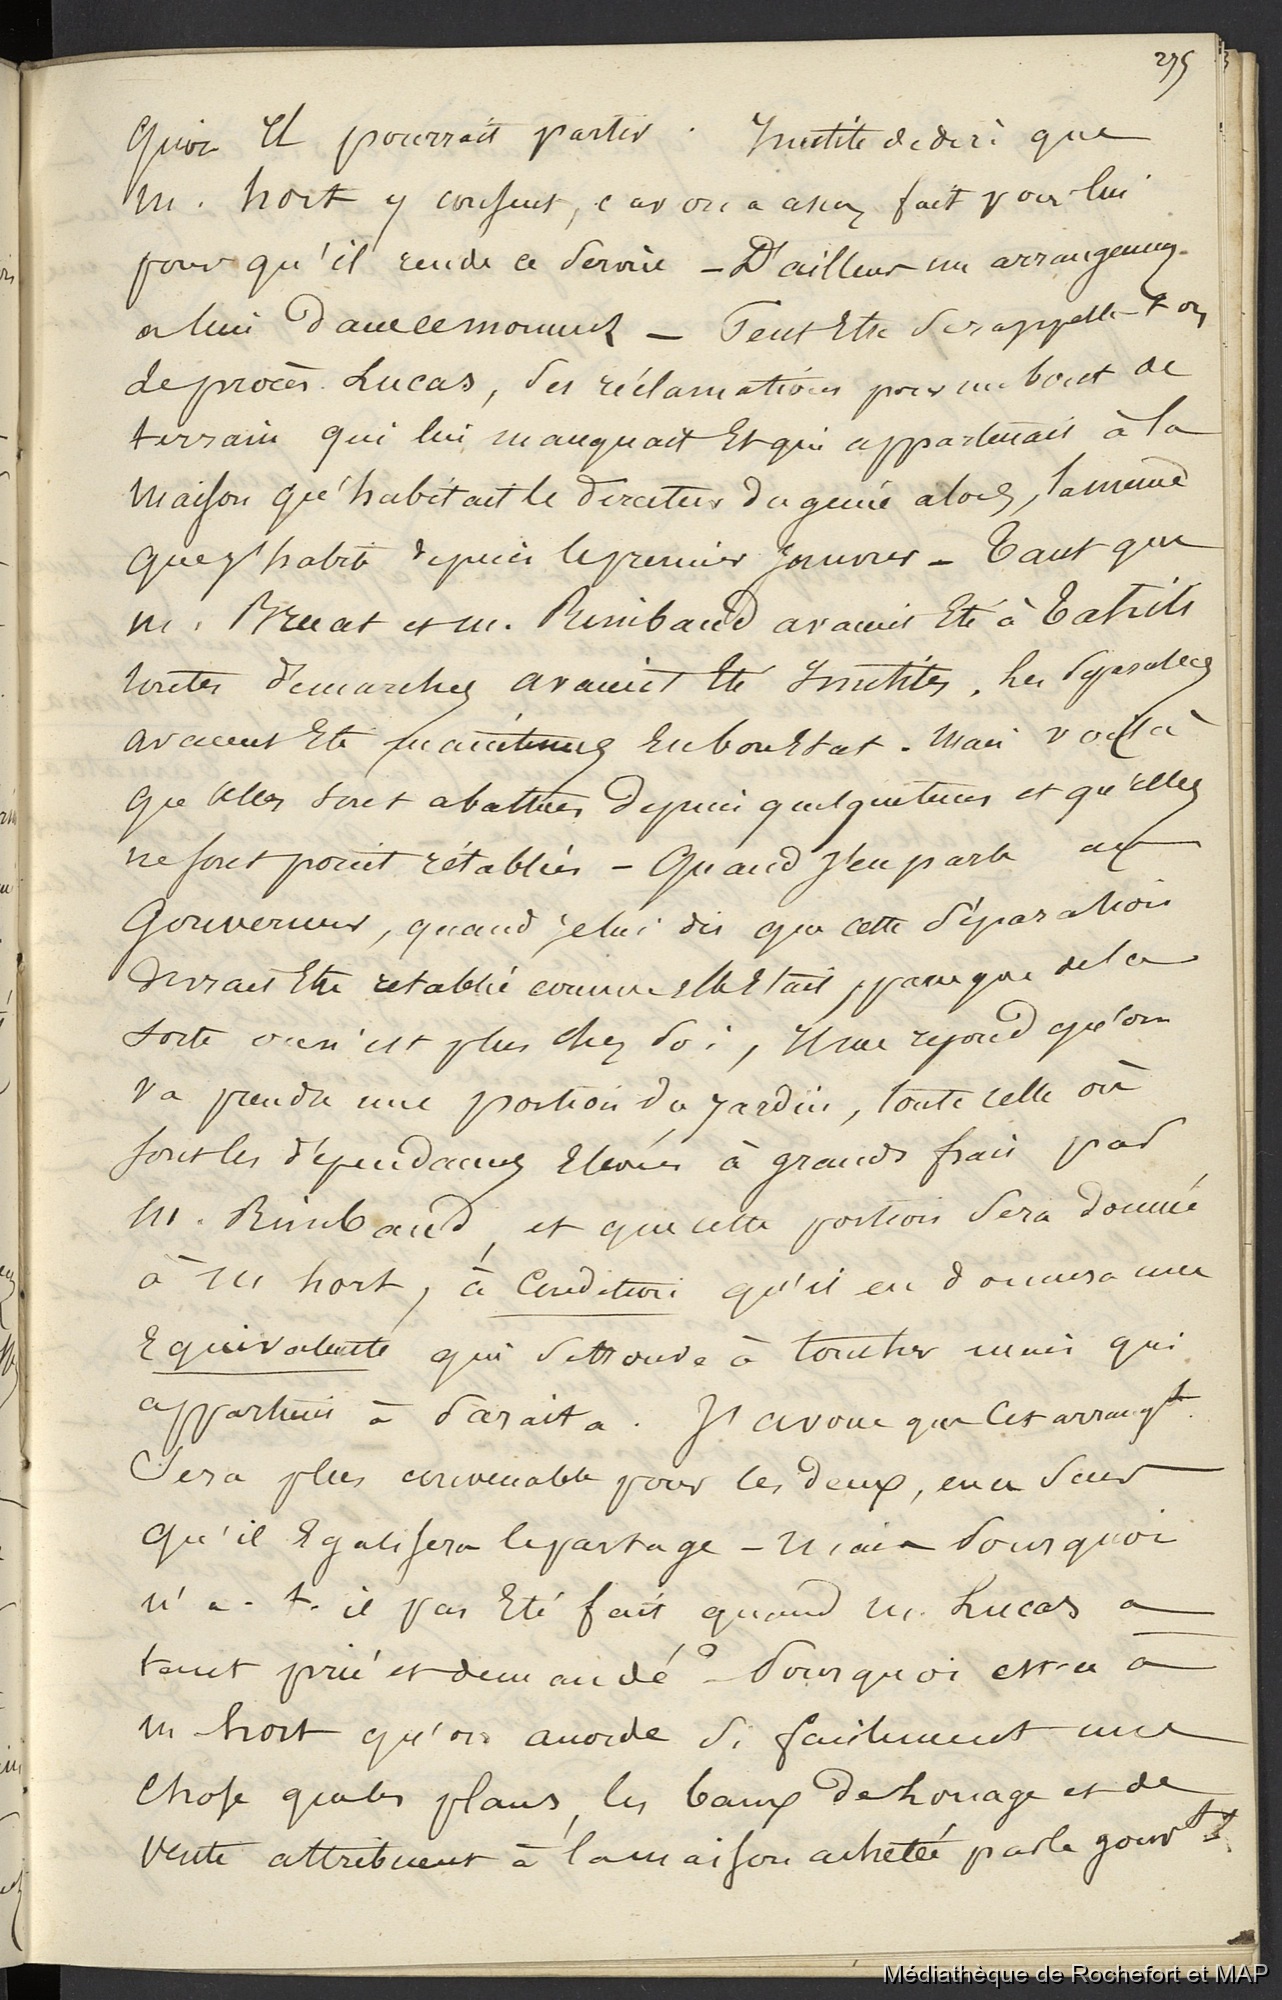 275
quoi Il pourrait partir. Inutile de dire que
M. hort y consent, car on a assez fait pour lui
pour qu'il rende ce service - D'ailleurs un arrangemt
a lieu dans ce moment - Peut Etre se rappelle-t-on
le procès Lucas, ses réclamations pour un bout de
terrain qui lui manquait Et qui appartenait à la
maison qu'habitait le directeur du génie alors, la même
que j'habite depuis le premier Janvier - Tant que
M. Bruat et M. Rimbaud avaient Eté à Tahiti
toutes démarches avaient Eté Inutiles. Les Séparations
avaient Eté maintenues En bon Etat. Mais voilà
que Elles sont abattues depuis quelque tems et qu'elles
ne sont point rétablies - Quand J'en parle au
Gouverneur, quand je lui dis que cette Séparation
devrait Etre rétablie comme elle Etait, parce que de la
sorte on n'est plus chez soi, Il me répond qu'on
va prendre une portion du jardin, toute celle où
sont les dépendances Elevées à grands frais par
M. Rimbaud, et que cette portion Sera donnée
à M hort, à Condition qu'il en donnera une
Equivalente qui se trouve à toucher mais qui
appartient à Paraita. J'avoue que Cet arrangt
Sera plus convenable pour les deux, en ce Sens
qu'il Egalisera le partage - Mais Pourquoi
n'a-t-il pas Eté fait quand M. Lucas a
tant prié et demandé? - Pourquoi est-ce à
M hort qu'on accorde si facilement une
Chose que les plans, les baux de Louage et de
Vente attribuent à la maison achetée par le gouvt
Médiathèque de Rochefort et MAP